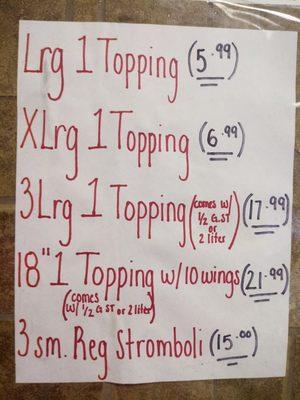 Lrg 1 Topping (5.99)
XLrg 1 Topping (6.99)
3 Lrg 1 Topping (comes w/ 1/2 G.ST or 2 liter) (17.99)
18" 1 Topping w/ 10 wings (21.99)
(comes w/ 1/2 G ST or 2 liter)
3 sm. Reg Stromboli (15.00)